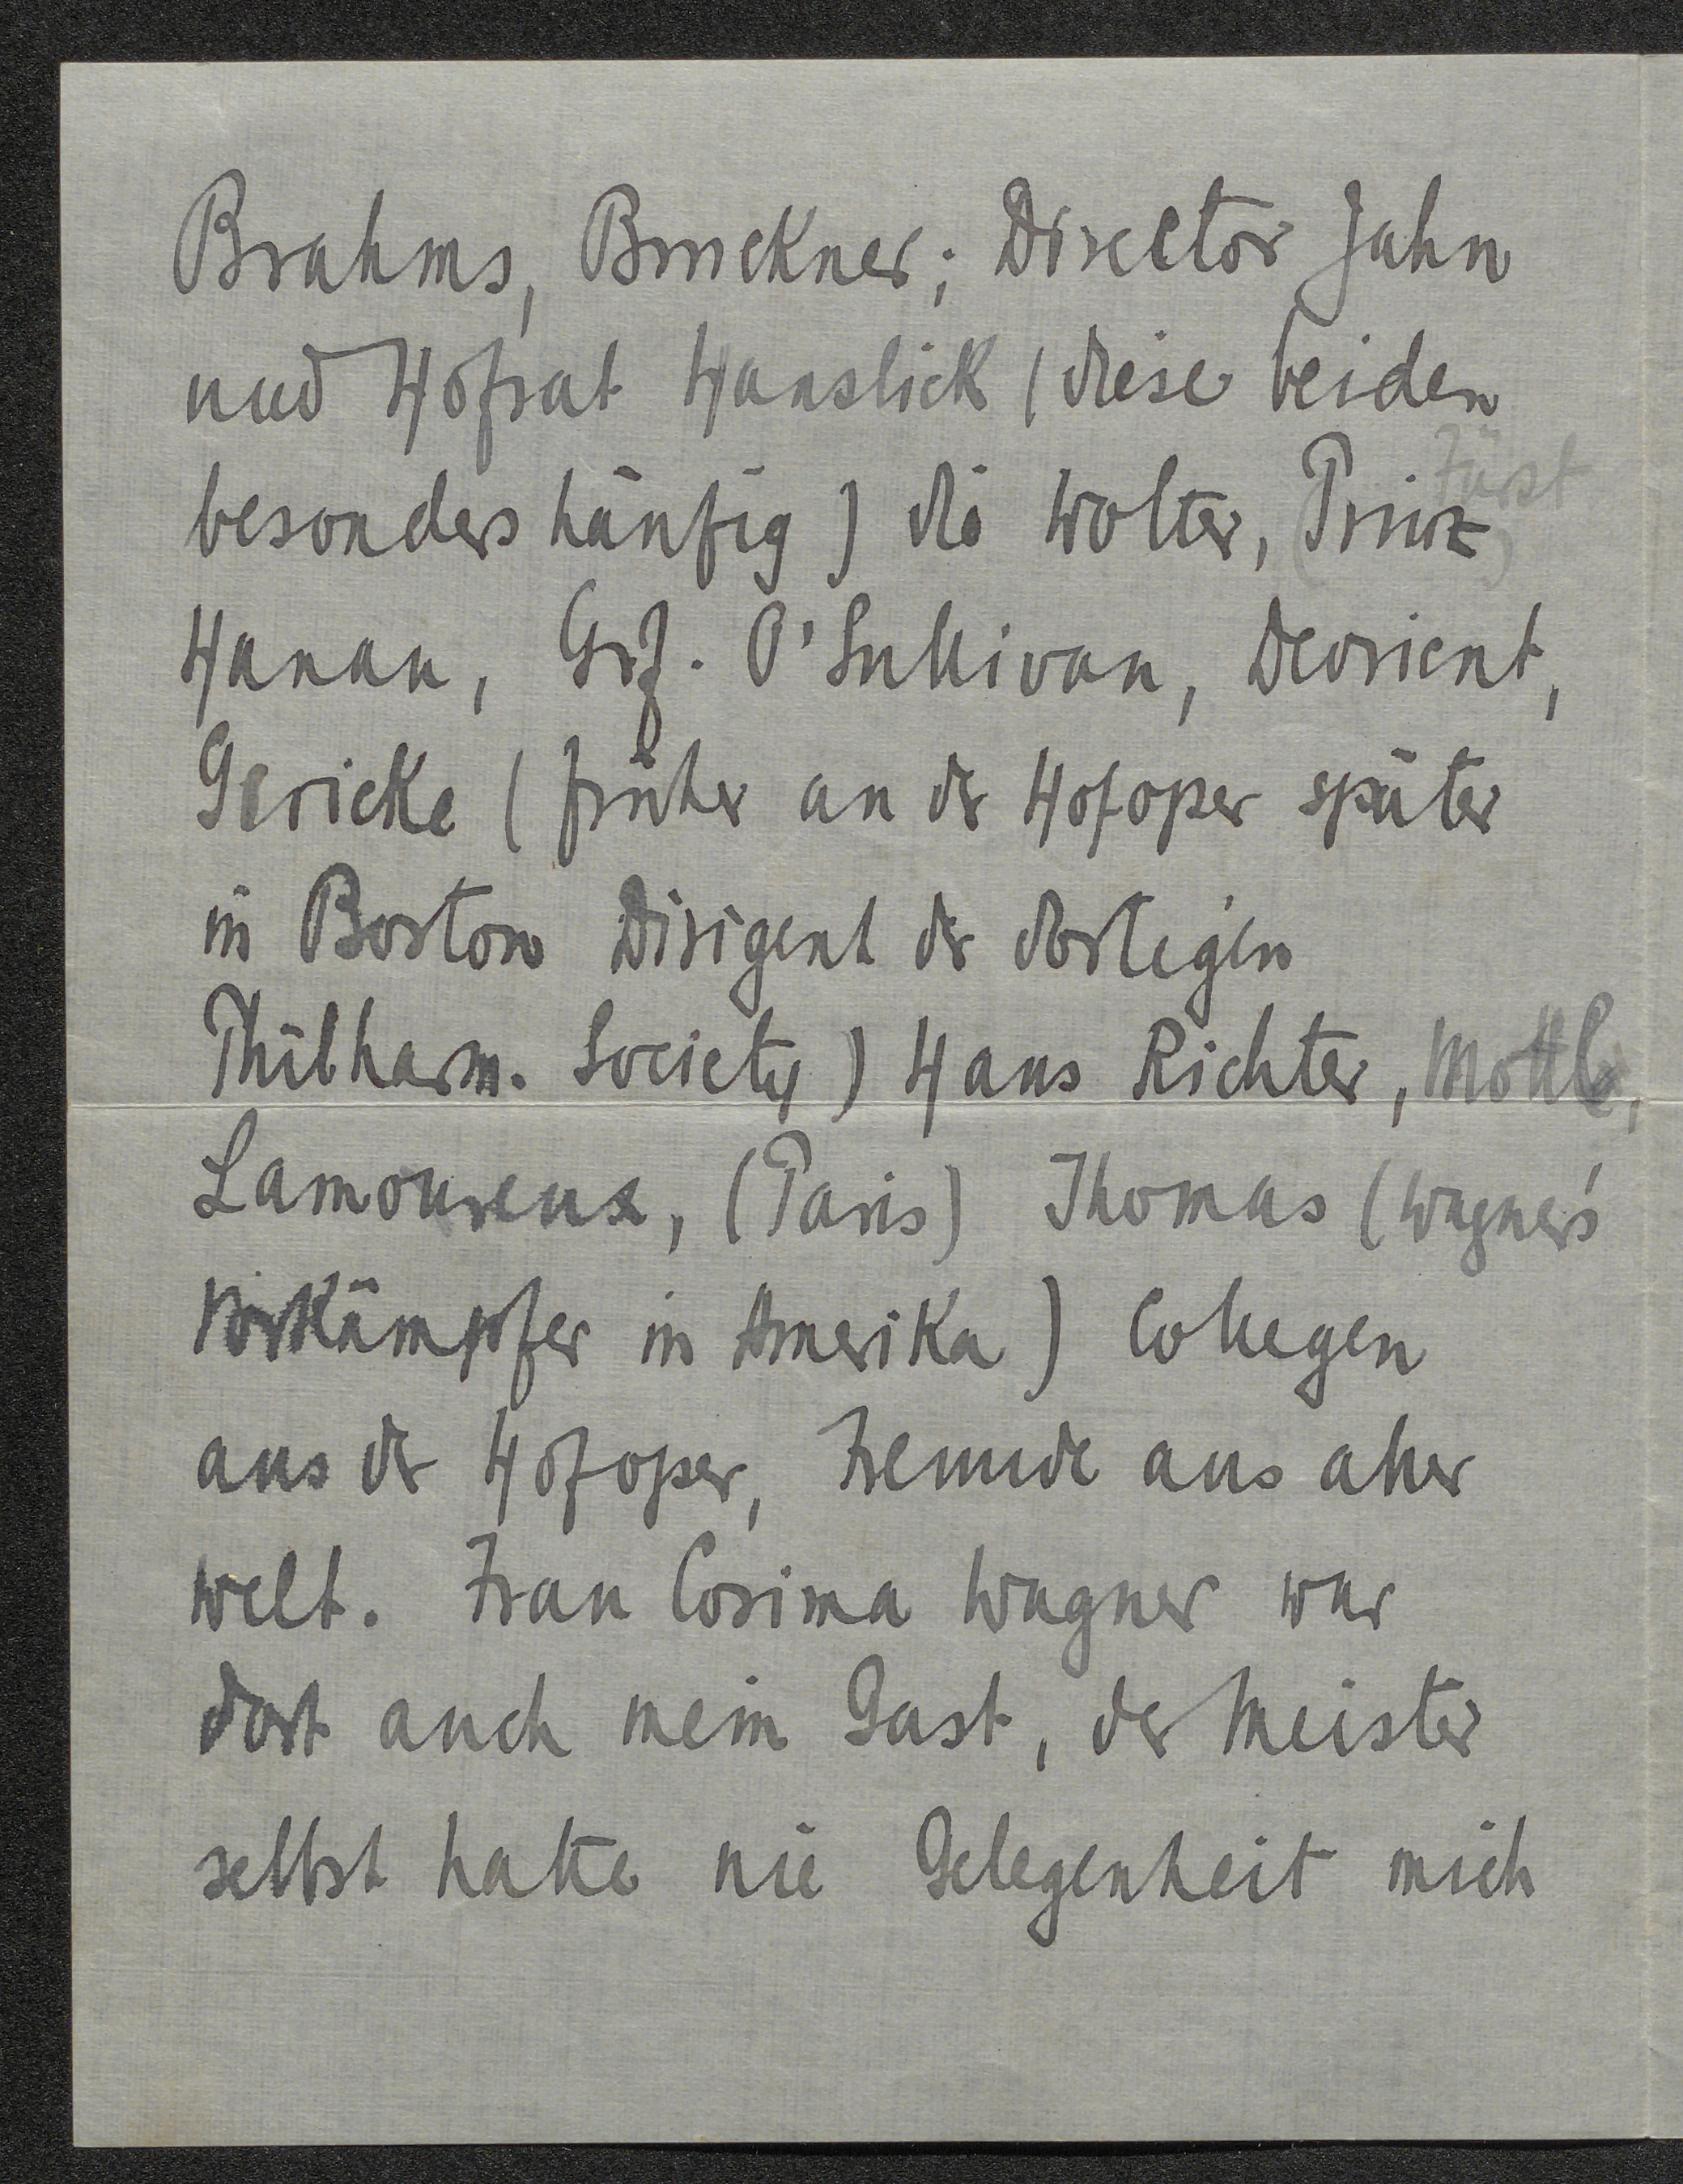 Brahms, Bruckner; Director Jahn
und Hofrat Hanslick (diese beiden
besonders häufig) die Wolter, (Prinz) Fürst
Hanau, Grf. O'Sullivan, Devrient,
Gericke (früher an der Hofoper später
in Boston Dirigent der dortigen
Philharm. Society) Hans Richter, Mottl,
Lamoureux, (Paris) Thomas (Wagner's
Vorkämpfer in Amerika) Collegen
aus der Hofoper, Freunde aus aller
Welt. Frau Cosima Wagner war
dort auch mein Gast, der Meister
selbst hatte nie Gelegenheit mich